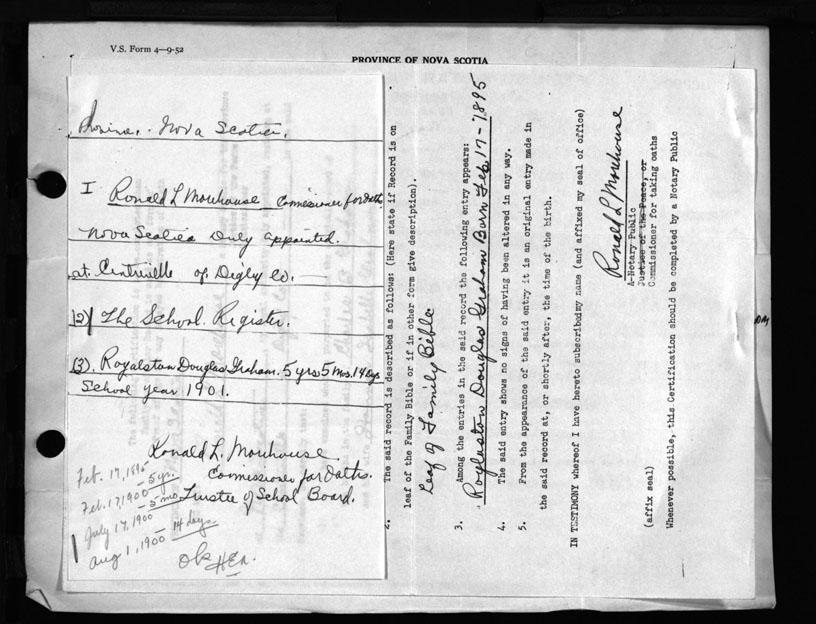 V.S. Form 4—9-52
PROVINCE OF NOVA SCOTIA
Provine. Nova Scotia.
I Ronald L Morehouse Commissioner for Oaths
Nova Scotia Duly appointed.
at. Centreville of Digby Co.
(2) The School Register.
(3). Royalston Douglas Graham. 5 yrs 5 Mos. 14 Dys
School year 1901.
Ronald L. Morehouse
Commissioner for Oaths.
Trustee of School Board.
Feb. 17, 1895
5 yr.
Feb. 17, 1900
5 mo.
July 17, 1900
14 days.
Aug 1, 1900
OK
HEA.
2. The said record is described as follows: (Here state if Record is on
leaf of the Family Bible or if in other form give description).
Leaf of Family Bible
3. Among the entries in the said record the following entry appears:
Roylaston Douglas Graham Born Feb 17 - 1895
4. The said entry shows no signs of having been altered in any way.
5. From the appearance of the said entry it is an original entry made in
the said record at, or shortly after, the time of the birth.
IN TESTIMONY whereof I have hereto subscribed my name (and affixed my seal of office)
Ronald L Morehouse
A-Notary Public
Justice of the Peace, or
Commissioner for taking oaths
(affix seal)
Whenever possible, this Certification should be completed by a Notary Public